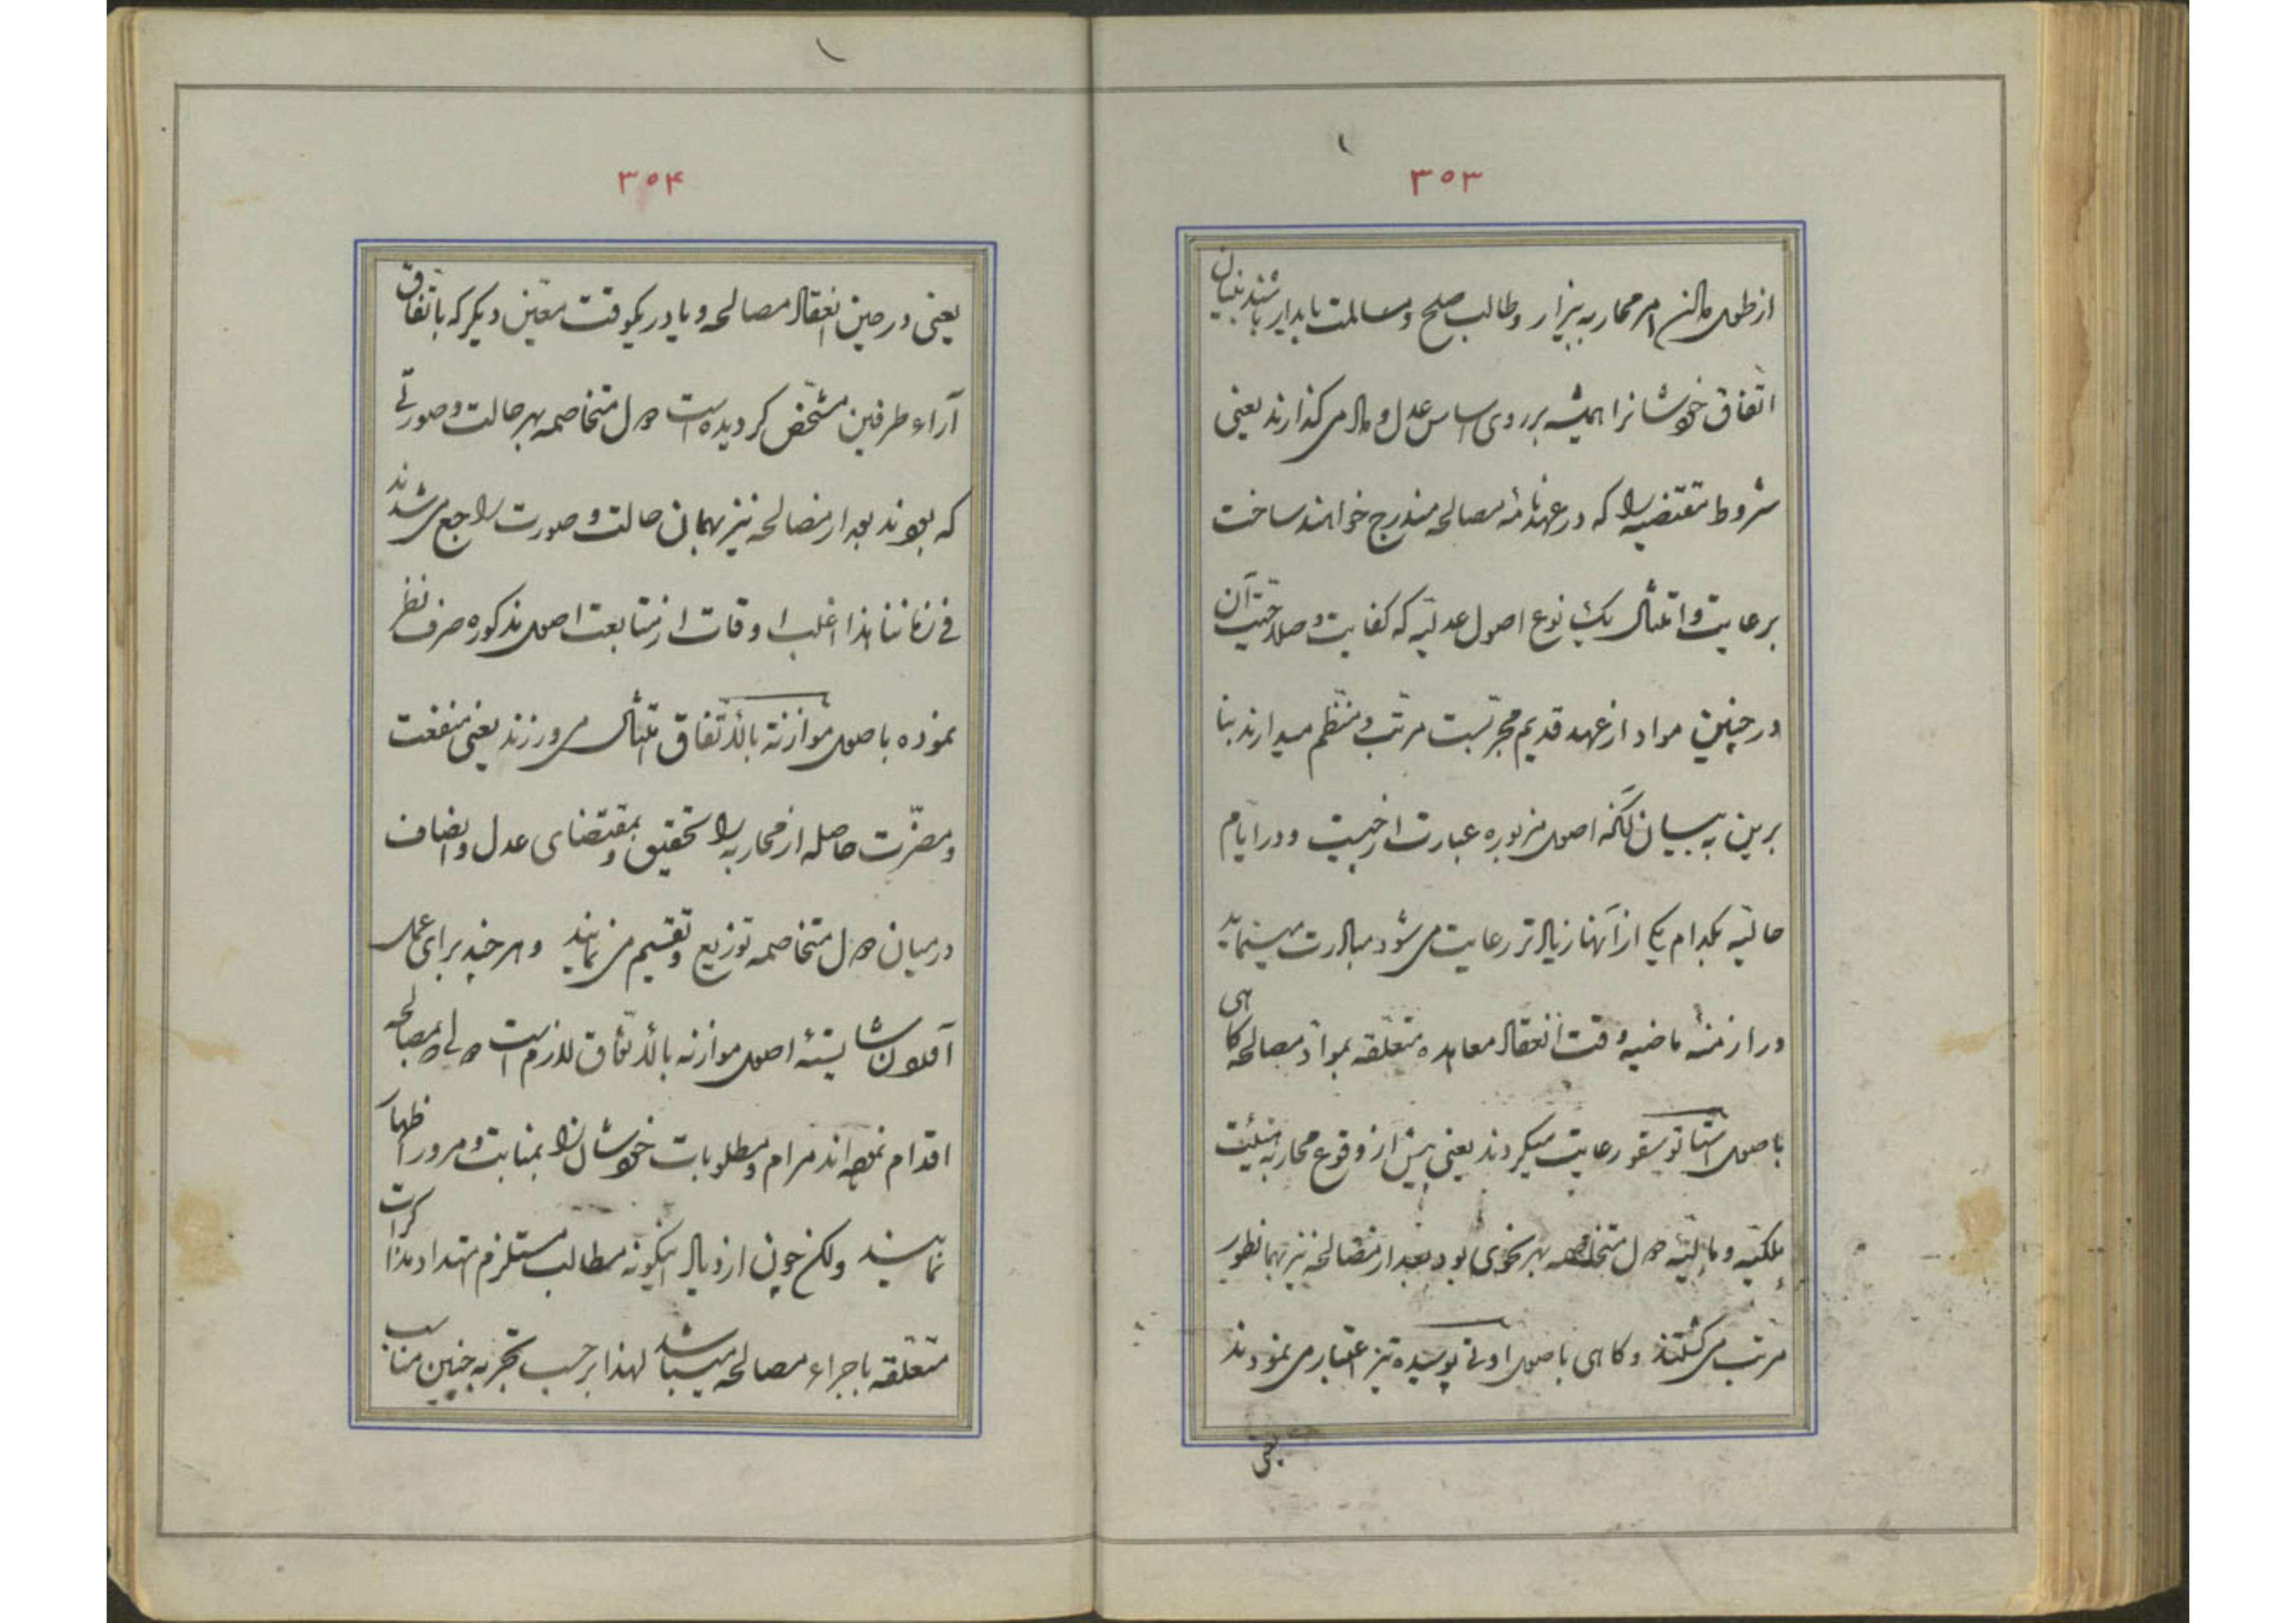 ۳۵۳
از طول دادن امر محاربه بیزار و طالب صلح و مسالمت پایدار باشند بنیان
اتفاق خودشانرا همیشه بر روی اساس عدل و داد می گذارند یعنی
شروط مقتضیه را که در عهدنامهٔ مصالحه مندرج خواهند ساخت
برعایت و امتثال یک نوع اصول عدلیّه که کفایت و صلاحیّت آن
در چنین مواد از عهد قدیم مجرّبست مرتّب و منتظم میدارند بنا
برین به بیان آنکه اصول مزبوره عبارت از چیست و در ایّام
حالیّه بکدام یک از آنها زیادتر رعایت می شود مبادرت مینماید
در ازمنهٔ ماضیه وقت انعقاد معاهده متعلّقه بموادّ مصالحه کاهی
باصول استاتوسقو رعایت میکردند یعنی پیش از وقوع محاربه هیئت
ملکیّه و مالیّه دول متخاصمه بهر نحوی بود بعد از مصالحه نیز بهمانطور
مرتب می کشتند و کاهی باصول اوتی پوسیده تیز اعتبار می نمودند
یعنی
۳۵۴
یعنی در حین انعقاد مصالحه و یا در یکوقت معیّن دیکر که باتّفاق
آراء طرفین مشخّص کردیده است دول متخاصمه بهر حالت و صورتی
که بودند بعد از مصالحه نیز بهمان حالت و صورت راجع می شدند
فی زماننا هذا اغلب اوقات از متابعت اصول مذکوره صرف نظر
نموده باصول موازنة بالاتّفاق امتثال می ورزند یعنی منفعت
و مضرّت حاصله از محاربه را تحقیق و بمقتضای عدل و انصاف
در میان دول متخاصمه توزیع و تقسیم می نمایند و هر چند برای عمل
آمدن شایستهٔ اصول موازنه بالاتّفاق لازم است دولی که بمصالحه
اقدام نموده اند مرام و مطلوبات خودشان را بمنابت و مرور اظهار
نمایند ولکن چون ازدیاد اینگونه مطالب مستلزم امتداد مذاکرات
متعلّقه باجراء مصالحه میباشد لهذا بر حسب تجربه چنین مناسب